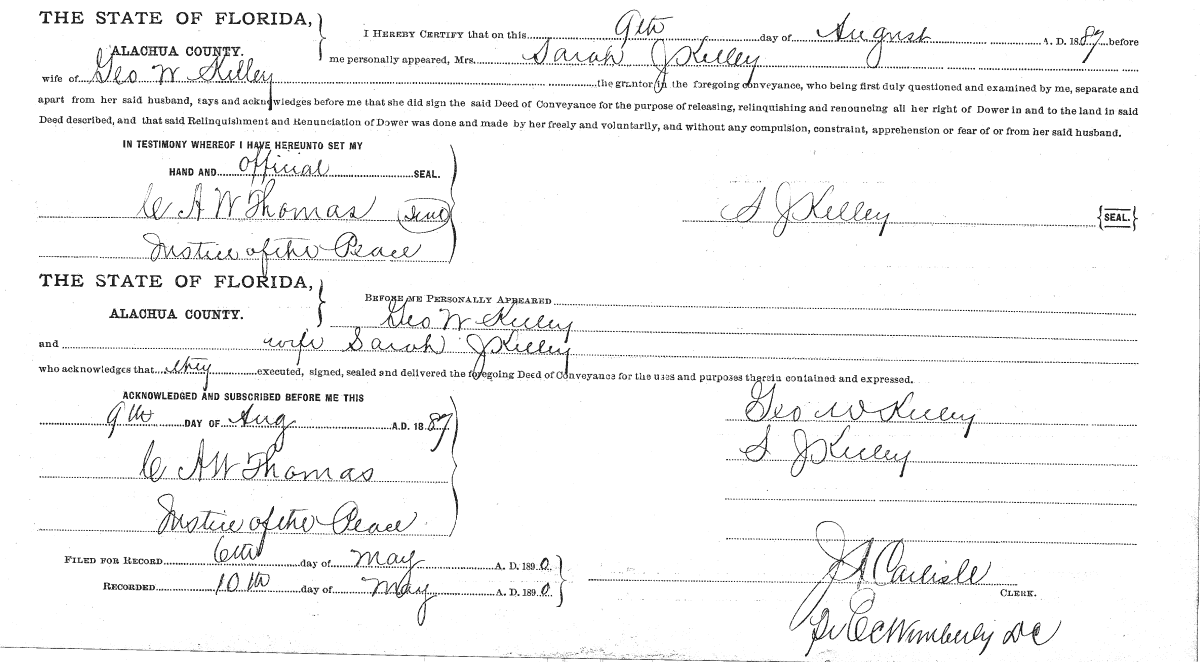 THE STATE OF FLORIDA,
ALACHUA COUNTY.
I HEREBY CERTIFY that on this 9th day of August A. D. 1887 before
me personally appeared, Mrs. Sarah J Kelley
wife of Geo W Kelley the grantor in the foregoing conveyance, who being first duly questioned and examined by me, separate and
apart from her said husband, says and acknowledges before me that she did sign the said Deed of Conveyance for the purpose of releasing, relinquishing and renouncing all her right of Dower in and to the land in said
Deed described, and that said Relinquishment and Renunciation of Dower was done and made by her freely and voluntarily, and without any compulsion, constraint, apprehension or fear of or from her said husband.
IN TESTIMONY WHEREOF I HAVE HEREUNTO SET MY
HAND AND official SEAL.
C A W Thomas Seal
S J Kelley {SEAL.}
Justice of the Peace
THE STATE OF FLORIDA,
ALACHUA COUNTY.
BEFORE ME PERSONALLY APPEARED
Geo W Kelley
and wife Sarah J Kelley
who acknowledges that they executed, signed, sealed and delivered the foregoing Deed of Conveyance for the uses and purposes therein contained and expressed.
ACKNOWLEDGED AND SUBSCRIBED BEFORE ME THIS
9th DAY OF Aug A.D. 1887
C A W Thomas
Justice of the Peace
Geo W Kelley
S J Kelley
FILED FOR RECORD 6th day of May A. D. 1890
RECORDED 10th day of May A. D. 1890
J A Carlisle
CLERK.
Pr C C Wimberly DC